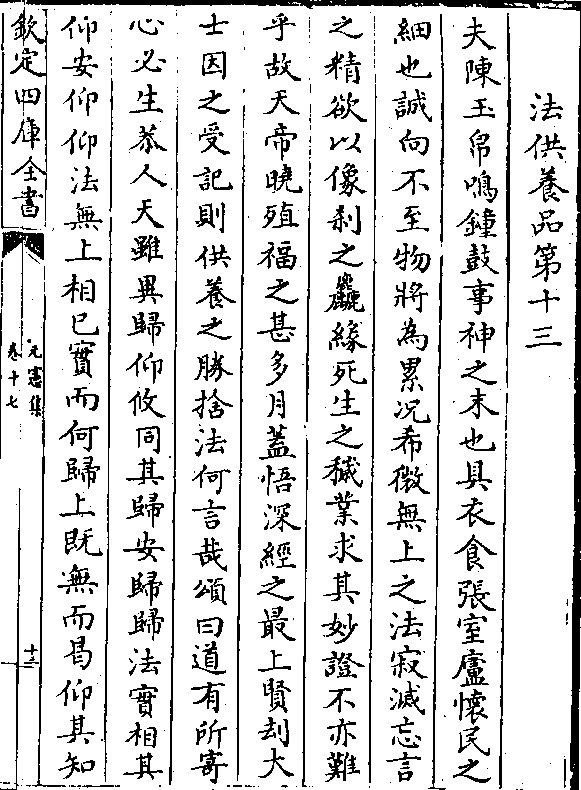 法供養品第十三
夫陳玉帛鳴鐘鼓事神之末也具衣食張室廬懷民之
細也誠向不至物將為累况希微無上之法寂滅忘言
之精欲以像刹之麤緣死生之穢業求其妙證不亦難
乎故天帝曉殖福之甚多月蓋悟深經之最上賢刦大
士因之受記則供養之勝捨法何言哉頌曰道有所寄
心必生恭人天雖異歸仰攸同其歸安歸歸法實相其
仰安仰仰法無上相已實而何歸上既無而曷仰其知
欽定四庫全書
元憲集
卷十七
十三